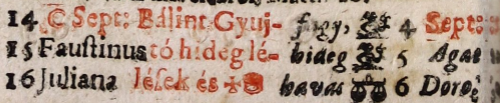 14 C Sept: Bálint. Gyuj- fagy, 4 Sept:
15 Faustinus tó hideg lé- hideg 5 Agat
16 Juliana lések és havas 6 Doro